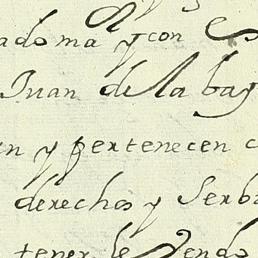 adoma y con
Juan de la bay
n y pertenecen
derechos y Serb
tener le Vendo